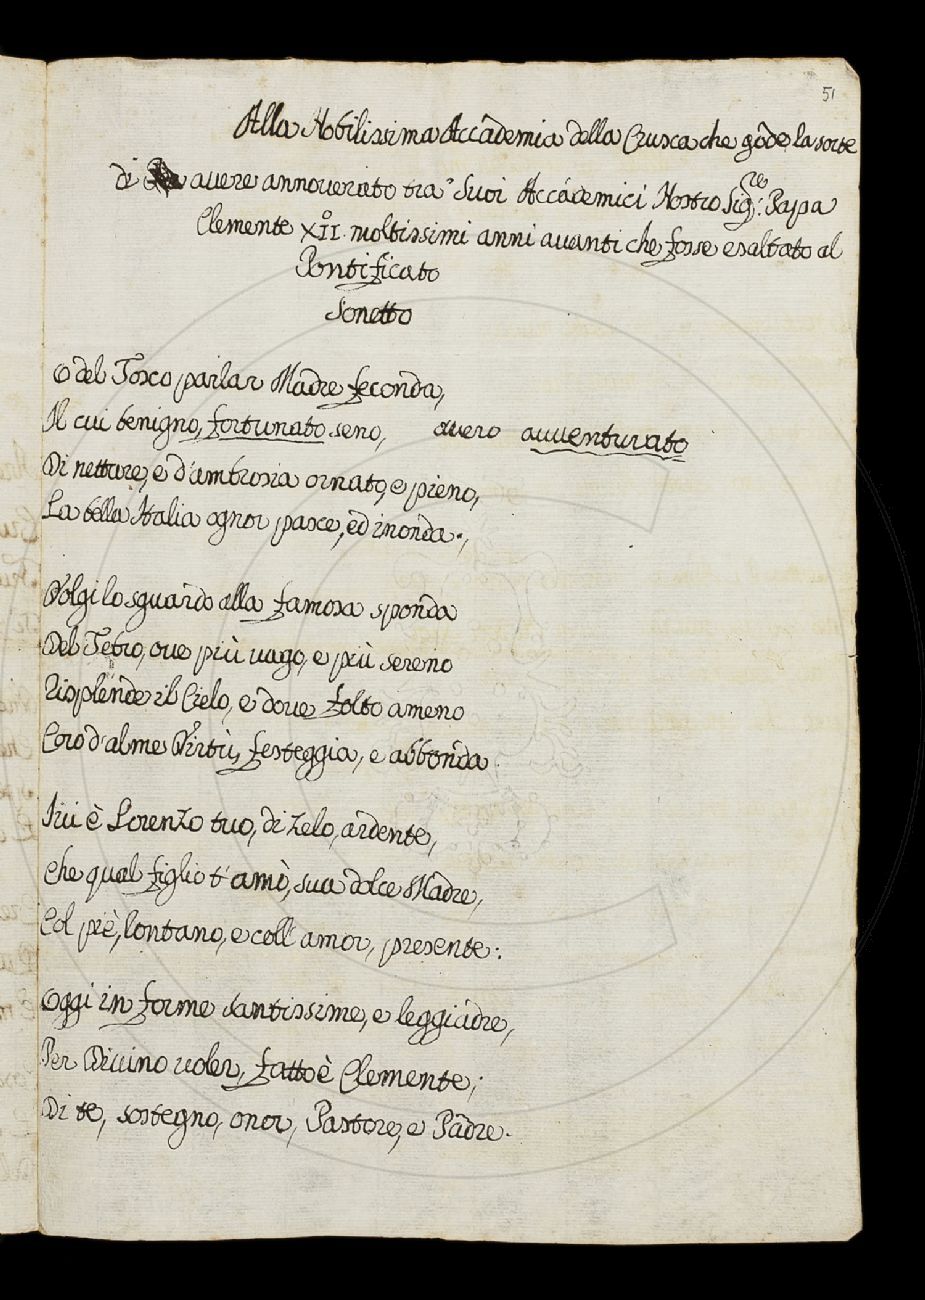 51
Alla Nobilissima Accademia della Crusca che gode la sorte
di avere annoverato tra' Suoi Accademici Nostro Sig.re Papa
Clemente XII.o moltissimi anni avanti che fosse esaltato al
Pontificato
Sonetto
O del Tosco parlar Madre feconda,
Il cui benigno, fortunato seno, overo avventurato
Di nettare, e d'ambrosia ornato, e pieno,
La bella Italia ognor pasce, ed inonda.,
Volgi lo sguardo alla famosa sponda
Del Tebro, ove più vago, e più sereno
Risplende il Cielo, e dove folto ameno
Coro d'alme Virtù, festeggia, e abbonda.
Ivi è Lorenzo tuo, di zelo, ardente,
Che qual figlio t'amò, sua dolce Madre,
Col piè, lontano, e coll'amor, presente:
Oggi in forme santissime, e leggiadre,
Per Divino voler, fatto è Clemente;
Di te, sostegno, onor, Pastore, e Padre.